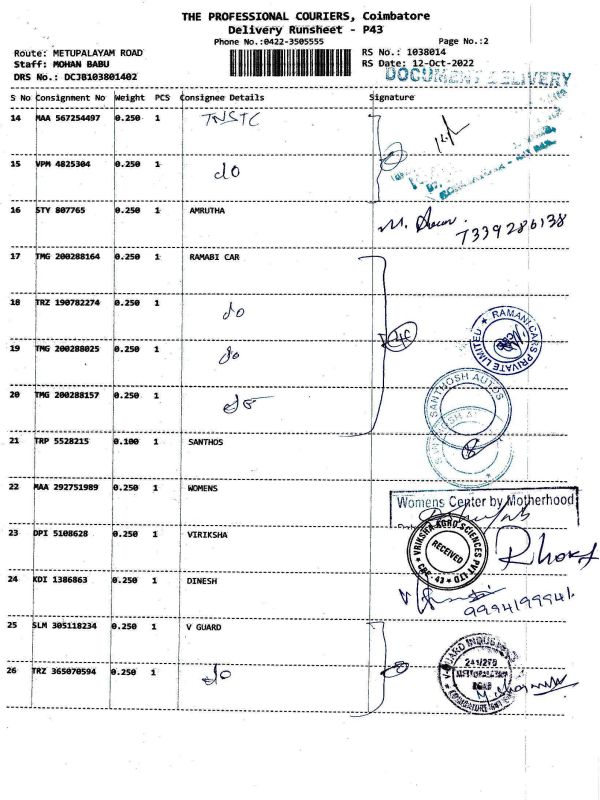 THE PROFESSIONAL COURIERS, Coimbatore
Delivery Runsheet - P43
Phone No.:0422-3505555 Page No.:2
Route: METUPALAYAM ROAD RS No.: 1038014
Staff: MOHAN BABU RS Date: 12-Oct-2022
DRS No.: DCJB103801402
DOCUMENT DELIVERY
S No Consignment No Weight PCS Consignee Details Signature
14 MAA 567254497 0.250 1 TNSTC
15 VPM 4825304 0.250 1 do
16 STY 807765 0.250 1 AMRUTHA
7339286138
17 TMG 200288164 0.250 1 RAMABI CAR
18 TRZ 190782274 0.250 1 do
RAMANI CARS PRIVATE LIMITED
19 TMG 200288025 0.250 1 do
20 TMG 200288157 0.250 1 do
SANTHOSH AUTOS
21 TRP 5528215 0.100 1 SANTHOS
22 MAA 292751989 0.250 1 WOMENS
Womens Center by Motherhood
23 DPI 5108628 0.250 1 VIRIKSHA
VRIKSHA AGRO SCIENCES PVT LTD
RECEIVED
CBE - 43
24 KDI 1386863 0.250 1 DINESH
9994199941
25 SLM 305118234 0.250 1 V GUARD
26 TRZ 365070594 0.250 1 do
V-GUARD INDUSTRIES
METTUPALAYAM
ROAD